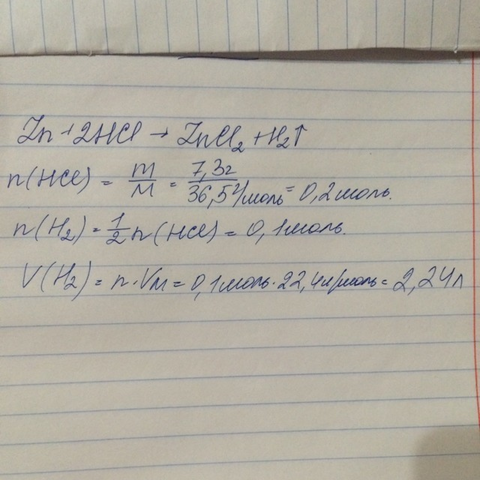 Zn + 2HCl → ZnCl₂ + H₂↑
n(HCl) = m/M = 7,3г/36,5г/моль = 0,2 моль.
n(H₂) = 1/2 n(HCl) = 0,1 моль.
V(H₂) = n · Vм = 0,1 моль · 22,4 л/моль = 2,24 л